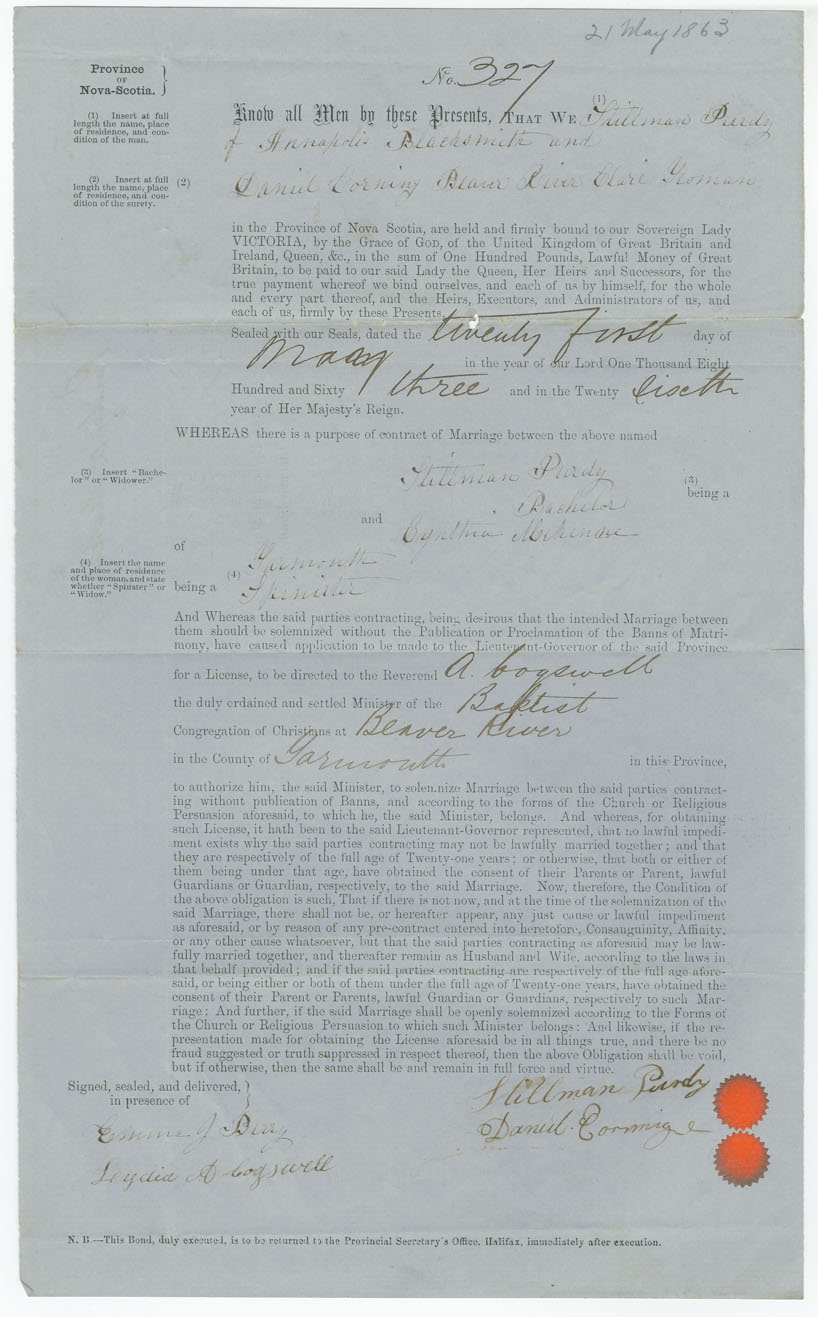 21 May 1863
Province
OF
Nova-Scotia.
No. 327
(1) Insert at full
length the name, place
of residence, and con-
dition of the man.
Know all Men by these Presents, THAT WE (1) Stillman Purdy
of Annapolis Blacksmith and
(2) Insert at full
length the name, place
of residence, and con-
dition of the surety.
(2) Daniel Corning Beaver River Clare Yeoman
in the Province of Nova Scotia, are held and firmly bound to our Sovereign Lady
VICTORIA, by the Grace of GOD, of the United Kingdom of Great Britain and
Ireland, Queen, &c., in the sum of One Hundred Pounds, Lawful Money of Great
Britain, to be paid to our said Lady the Queen, Her Heirs and Successors, for the
true payment whereof we bind ourselves, and each of us by himself, for the whole
and every part thereof, and the Heirs, Executors, and Administrators of us, and
each of us, firmly by these Presents.
Sealed with our Seals, dated the twenty first day of
May in the year of our Lord One Thousand Eight
Hundred and Sixty three and in the Twenty sixth
year of Her Majesty's Reign.
WHEREAS there is a purpose of contract of Marriage between the above named
(3) Insert "Bache-
lor" or "Widower."
Stillman Purdy (3)
being a
Bachelor
and Cynthia McKenzie
of Yarmouth
(4) Insert the name
and place of residence
of the woman, and state
whether "Spinster" or
"Widow."
being a (4) Spinister
And Whereas the said parties contracting, being desirous that the intended Marriage between
them should be solemnized without the Publication or Proclamation of the Banns of Matri-
mony, have caused application to be made to the Lieutenant-Governor of the said Province
for a License, to be directed to the Reverend A. Cogswell
the duly ordained and settled Minister of the Baptist
Congregation of Christians at Beaver River
in the County of Yarmouth in this Province,
to authorize him, the said Minister, to solemnize Marriage between the said parties contract-
ing without publication of Banns, and according to the forms of the Church or Religious
Persuasion aforesaid, to which he, the said Minister, belongs. And whereas, for obtaining
such License, it hath been to the said Lieutenant-Governor represented, that no lawful impedi-
ment exists why the said parties contracting may not be lawfully married together; and that
they are respectively of the full age of Twenty-one years; or otherwise, that both or either of
them being under that age, have obtained the consent of their Parents or Parent, lawful
Guardians or Guardian, respectively, to the said Marriage. Now, therefore, the Condition of
the above obligation is such, That if there is not now, and at the time of the solemnization of the
said Marriage, there shall not be, or hereafter appear, any just cause or lawful impediment
as aforesaid, or by reason of any pre-contract entered into heretofore, Consanguinity, Affinity,
or any other cause whatsoever, but that the said parties contracting as aforesaid may be law-
fully married together, and thereafter remain as Husband and Wife, according to the laws in
that behalf provided; and if the said parties contracting are respectively of the full age afore-
said, or being either or both of them under the full age of Twenty-one years, have obtained the
consent of their Parent or Parents, lawful Guardian or Guardians, respectively to such Mar-
riage: And further, if the said Marriage shall be openly solemnized according to the Forms of
the Church or Religious Persuasion to which such Minister belongs: And likewise, if the re-
presentation made for obtaining the License aforesaid be in all things true, and there be no
fraud suggested or truth suppressed in respect thereof, then the above Obligation shall be void,
but if otherwise, then the same shall be and remain in full force and virtue.
Signed, sealed, and delivered,
in presence of
Stillman Purdy
Daniel Corning
J Berry
Lydia A Cogswell
N. B.—This Bond, duly executed, is to be returned to the Provincial Secretary's Office, Halifax, immediately after execution.